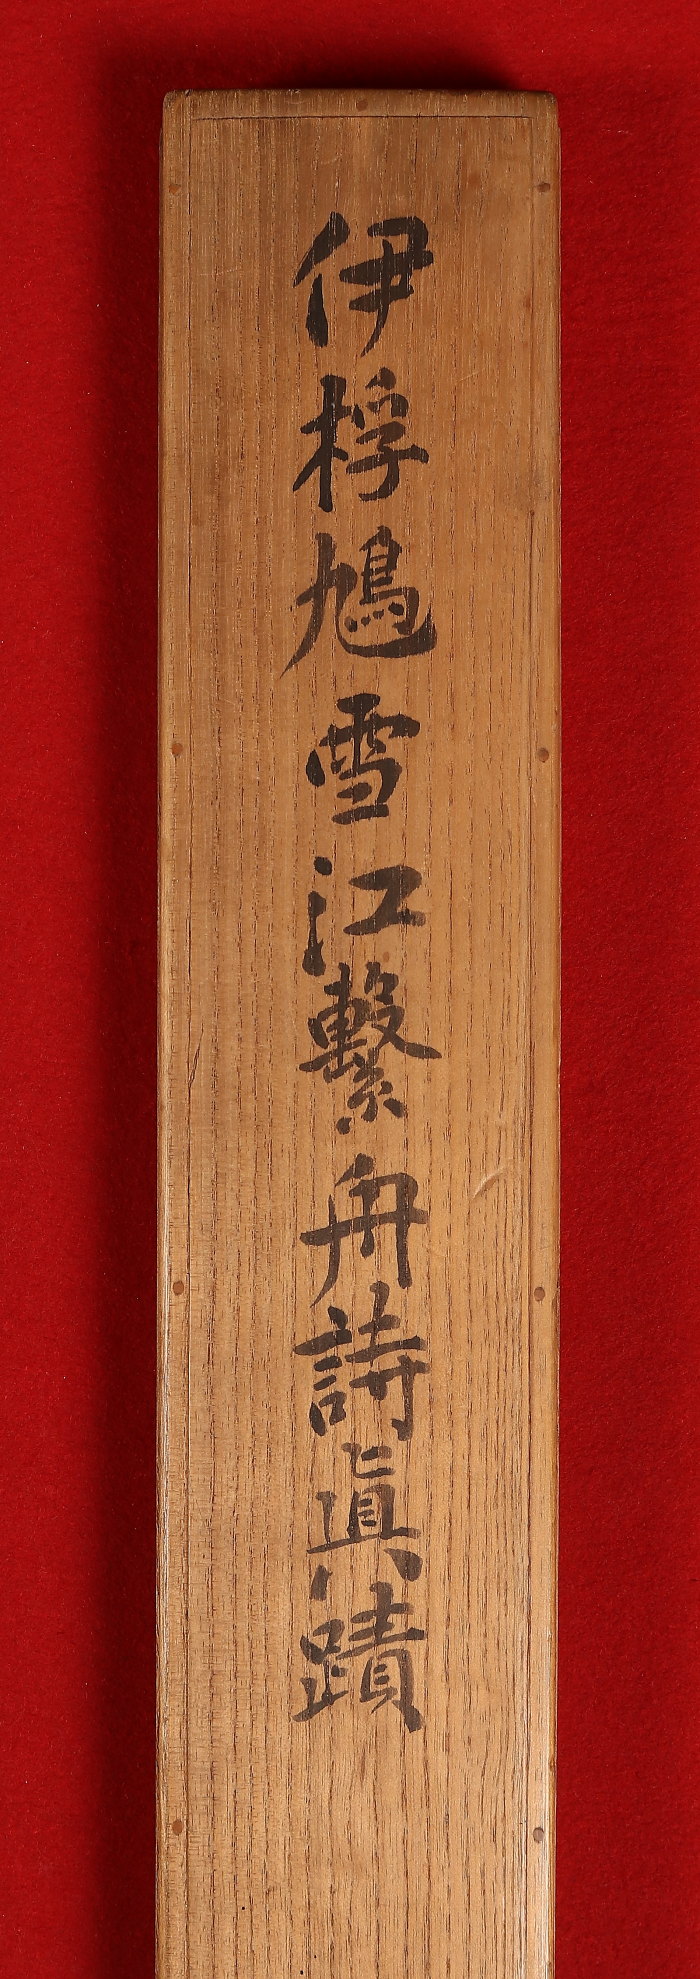 伊桴鳩雪江繫舟詩眞蹟